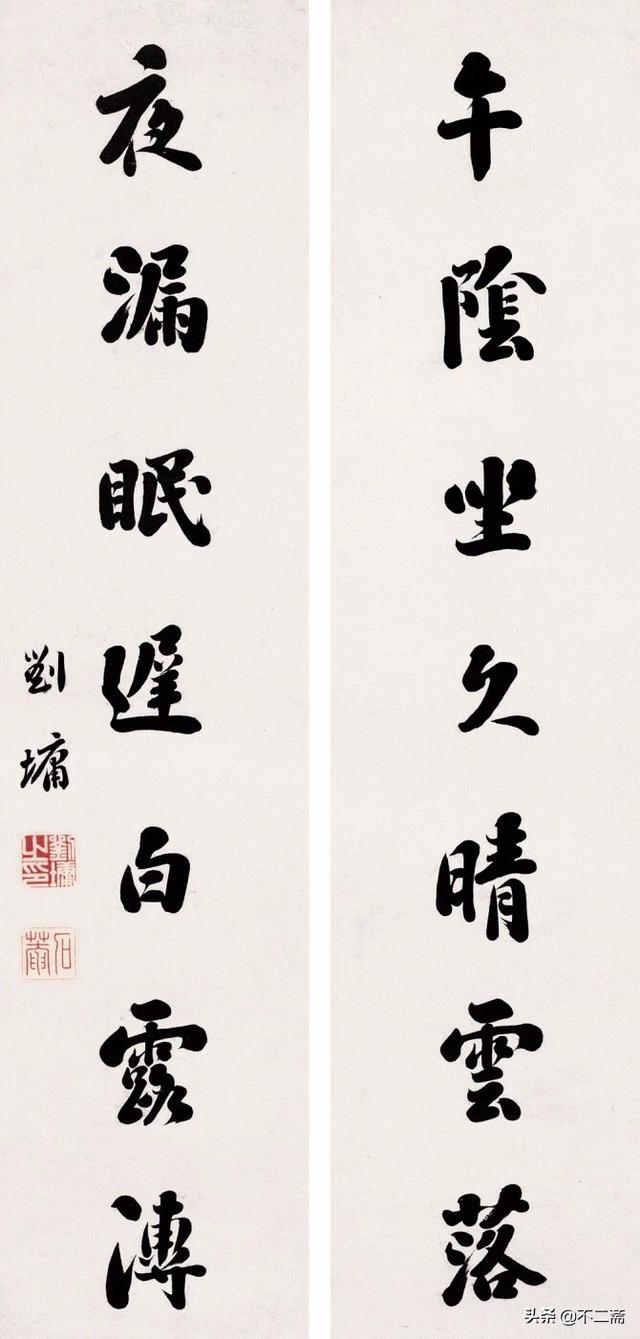 午陰坐久晴雲落
夜漏眠遲白露漙
劉墉
劉墉之印
石菴
头条 @不二斋